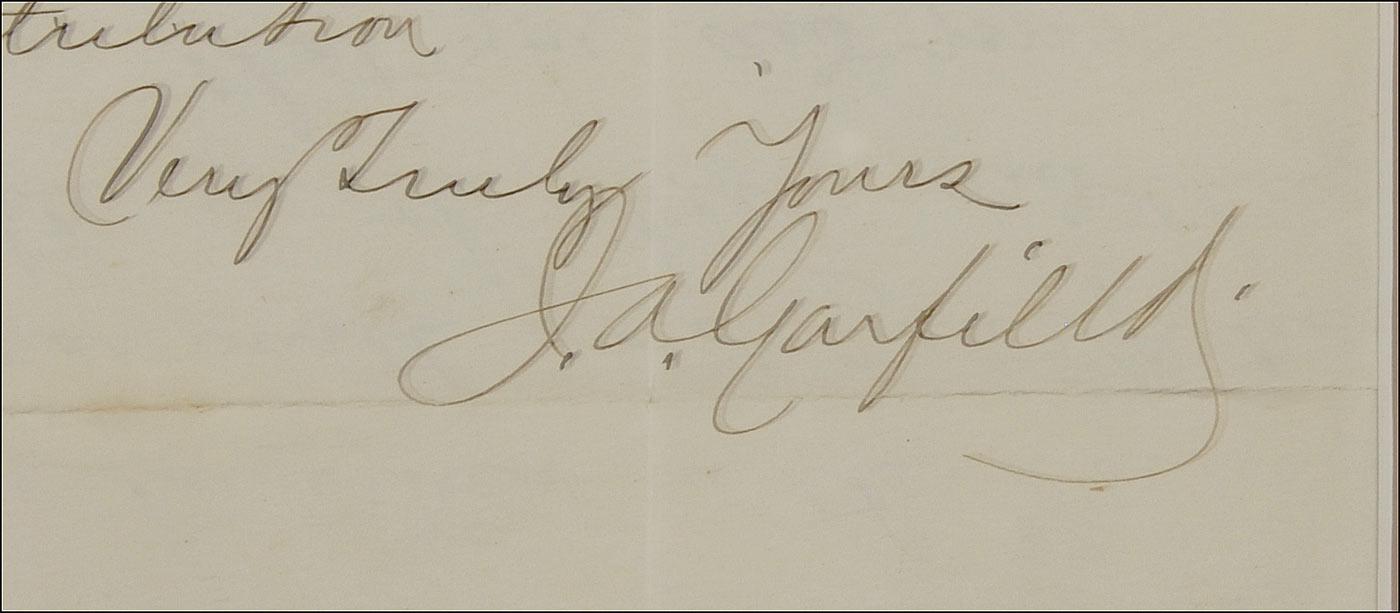 tribution
Very Truly Yours
J. A. Garfield.